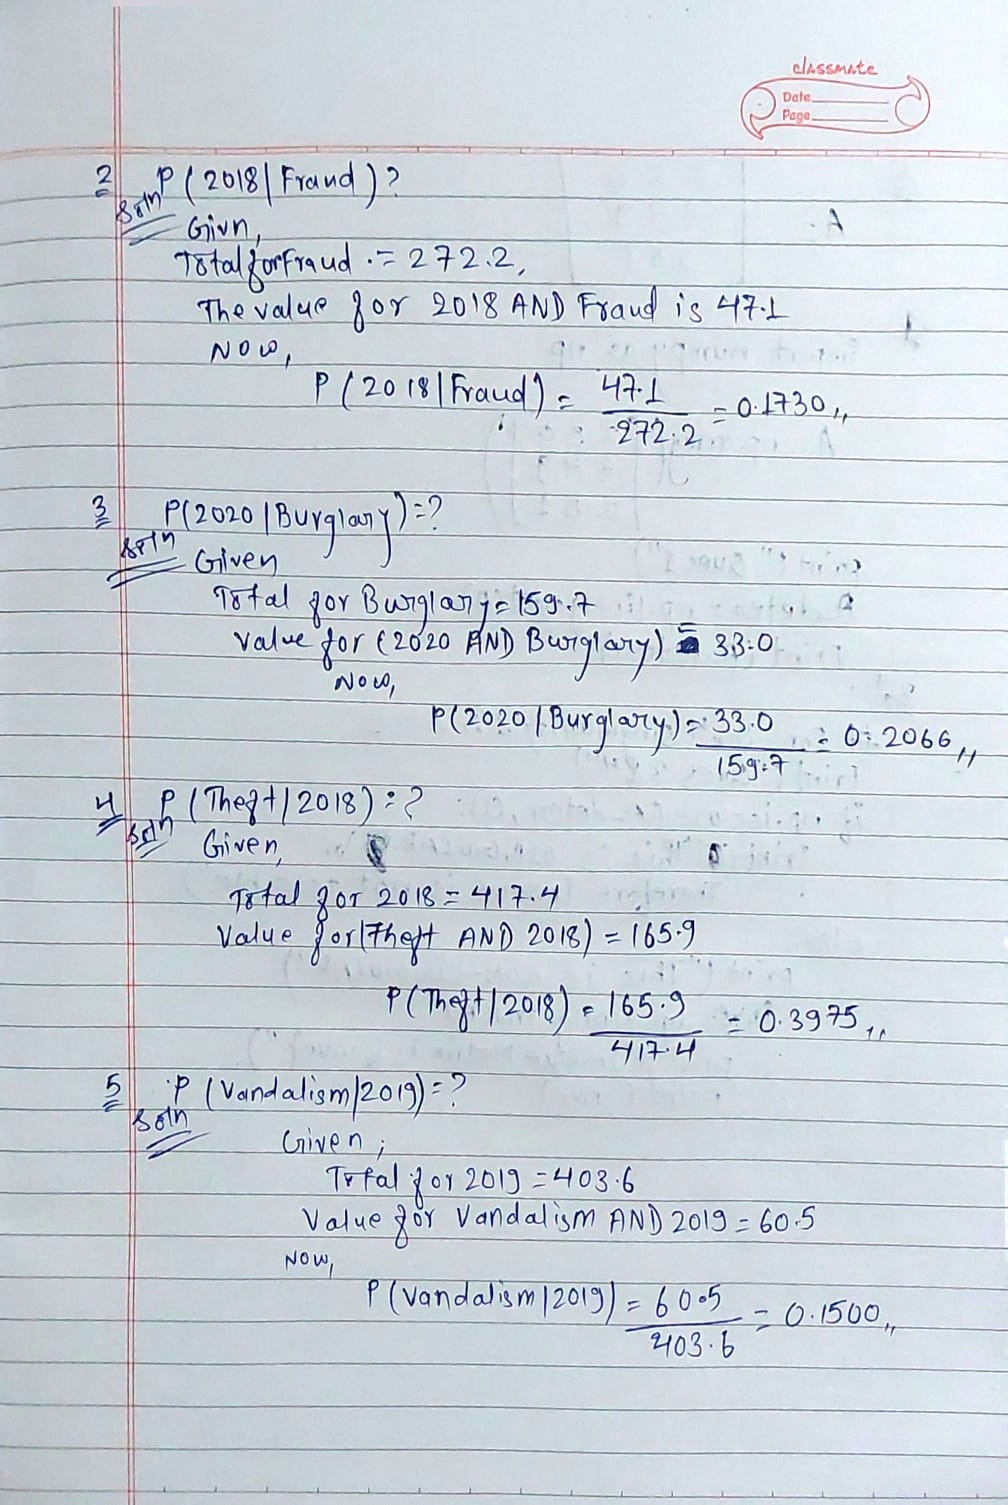 classmate
Date
Page
2 P(2018|Fraud)?
Soln
Givn,
Total for Fraud = 272.2,
The value for 2018 AND Fraud is 47.1
Now,
P(2018|Fraud) = 47.1 / 272.2 = 0.1730,,
3 P(2020|Burglary)=?
Soln Given
Total for Burglary = 159.7
Value for (2020 AND Burglary) = 33.0
Now,
P(2020|Burglary) = 33.0 / 159.7 = 0.2066,,
4 P(Theft|2018)=?
Soln Given,
Total for 2018 = 417.4
Value for (Theft AND 2018) = 165.9
P(Theft|2018) = 165.9 / 417.4 = 0.3975,,
5 P(Vandalism|2019)=?
Soln
Given;
Total for 2019 = 403.6
Value for Vandalism AND 2019 = 60.5
Now,
P(Vandalism|2019) = 60.5 / 403.6 = 0.1500,,